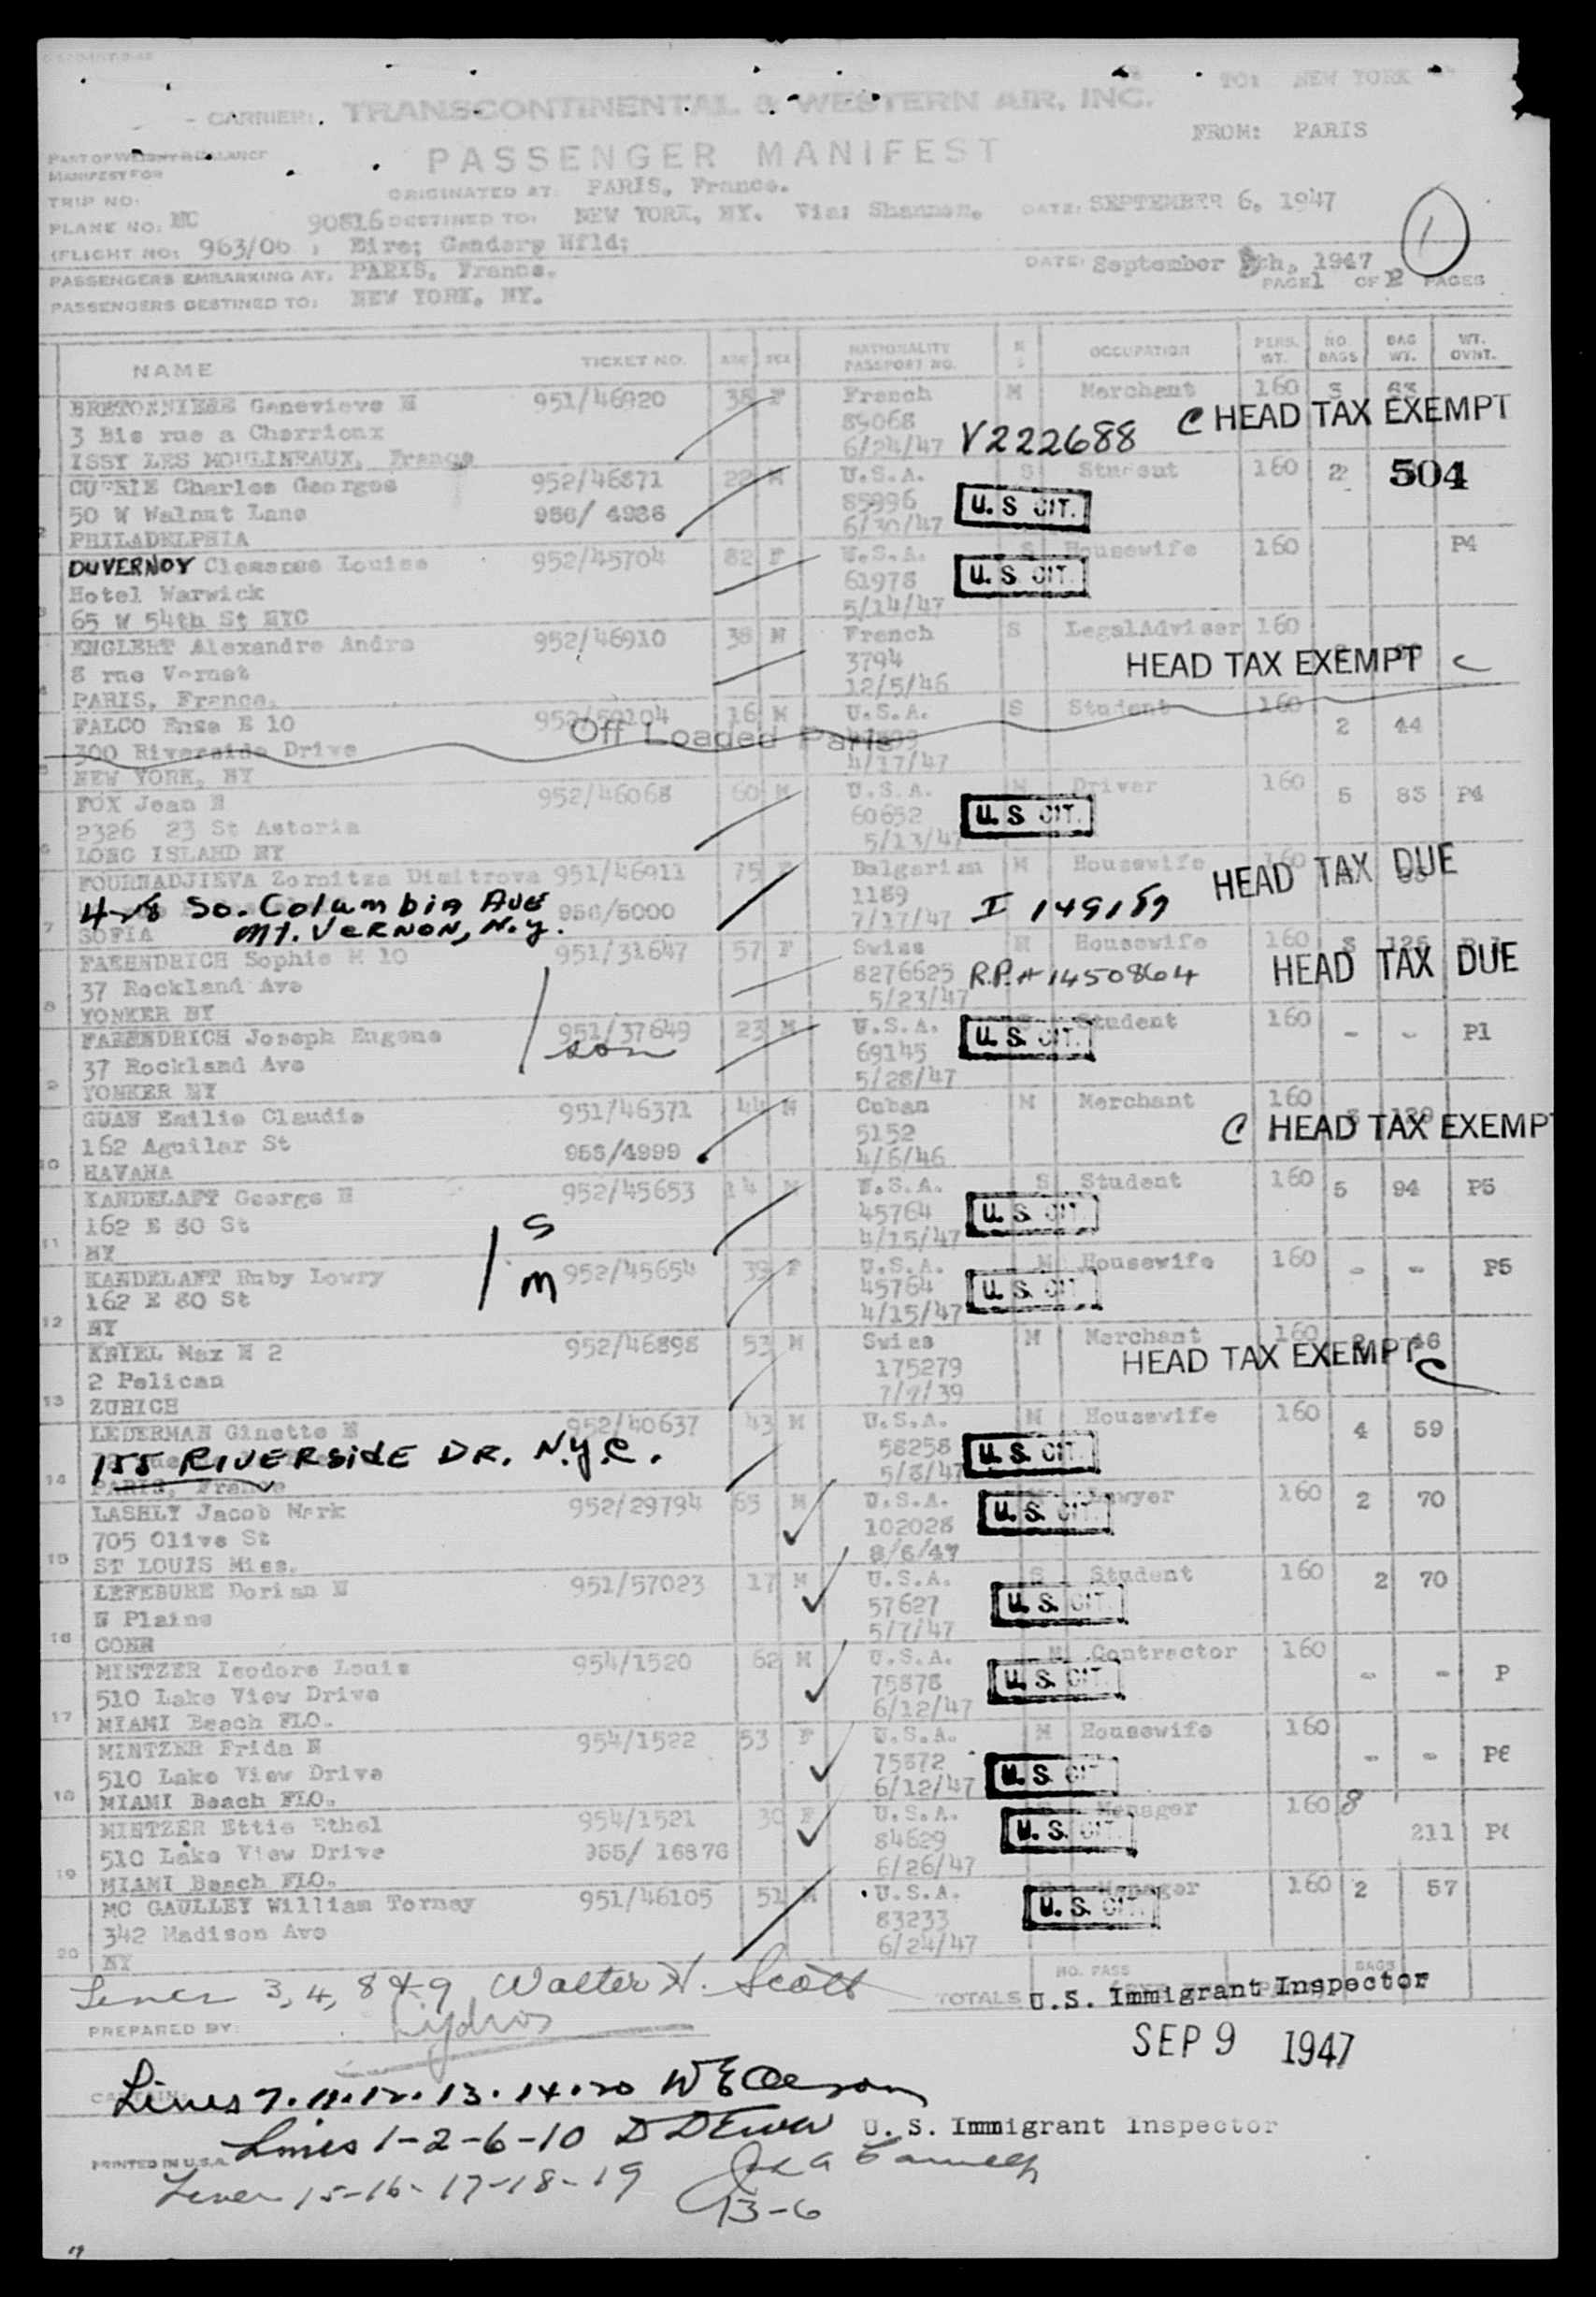 TO: NEW YORK
CARRIER: TRANSCONTINENTAL & WESTERN AIR, INC.
FROM: PARIS
PART OF WEIGHT & BALANCE
MANIFEST FOR
PASSENGER MANIFEST
TRIP NO:
ORIGINATED AT: PARIS, France.
PLANE NO: NC 90816 DESTINED TO: NEW YORK, NY. Via: Shannon, DATE: SEPTEMBER 6, 1947
(FLIGHT NO: 963/06 , Eire; Gander, Nfld;
1
PASSENGERS EMBARKING AT: PARIS, France. DATE: September 8th, 1947
PASSENGERS DESTINED TO: NEW YORK, NY. PAGE 1 OF 2 PAGES
NAME TICKET NO. AGE SEX NATIONALITY PASSPORT NO. M S OCCUPATION PERS. WT. NO BAGS BAG WT. WT. OVNT.
BRETONNIERE Genevieve N 951/46920 38 F French M Merchant 160 3 63
3 Bis rue a Cherrioux 89068 V222688 C HEAD TAX EXEMPT
ISSY LES MOULINEAUX, France 6/24/47
CURRIE Charles Georges 952/46871 22 M U.S.A. S Student 160 2 504
50 W Walnut Lane 956/ 4986 85996 U. S CIT.
2 PHILADELPHIA 6/30/47
DUVERNOY Clemence Louise 952/45704 82 F U.S.A. S Housewife 160 P4
Hotel Warwick 61978 U. S CIT.
3 65 W 54th St NYC 5/14/47
ENGLERT Alexandre Andre 952/46910 38 M French S LegalAdviser 160
8 rue Vernet 3794 HEAD TAX EXEMPT C
4 PARIS, France. 12/5/46
FALCO Enea E 10 952/59104 16 M U.S.A. S Student 160 2 44
300 Riverside Drive Off Loaded Paris
5 NEW YORK, NY 4/17/47
FOX Jean N 952/46068 60 M U.S.A. M Driver 160 5 83 P4
2326 23 St Astoria 60652 U. S CIT.
6 LONG ISLAND NY 5/13/47
FOURNADJIEVA Zornitza Dimitrova 951/46911 75 F Bulgarian M Housewife 160 HEAD TAX DUE
428 So. Columbia Ave 956/5000 1189 I 149159
7 SOFIA Mt. Vernon, N.y. 7/17/47
FAEHNDRICH Sophie M 10 951/31647 57 F Swiss M Housewife 160 3 126
37 Rockland Ave 8276625 R.P.# 1450864 HEAD TAX DUE
8 YONKER NY 5/23/47
FAEHNDRICH Joseph Eugene 951/37649 23 M U.S.A. S Student 160 - - P1
37 Rockland Ave son 69145 U. S. CIT.
9 YONKER NY 5/28/47
GUAN Emilio Claudio 951/46371 44 M Cuban M Merchant 160
162 Aguilar St 956/4999 5152 C HEAD TAX EXEMPT
10 HAVANA 4/6/46
KANDELAFT George N 952/45653 14 M U.S.A. S Student 160 5 94 P5
162 E 80 St S 45764 U. S. CIT.
11 NY 4/15/47
KANDELAFT Ruby Lowry M 952/45654 39 F U.S.A. M Housewife 160 - - P5
162 E 80 St 45764 U. S. CIT.
12 NY 4/15/47
KRIEL Max N 2 952/46898 53 M Swiss M Merchant 160 46
2 Pelican 175279 HEAD TAX EXEMPT C
13 ZURICH 7/7/39
LEDERMAN Ginette N 952/40637 43 M U.S.A. M Housewife 160 4 59
155 RIVERSIDE DR. N.y.C. 58258 U. S. CIT.
14 PARIS, France 5/8/47
LASHLY Jacob Mark 952/29794 65 M U.S.A. M Lawyer 160 2 70
705 Olive St 102028 U. S. CIT.
15 ST LOUIS Miss. 8/6/47
LEFEBURE Dorian N 951/57023 17 M U.S.A. S Student 160 2 70
N Plains 57627 U. S. CIT.
16 CONN 5/7/47
MINTZER Isodore Louis 954/1520 62 M U.S.A. M Contractor 160 - - P
510 Lake View Drive 75878 U. S. CIT.
17 MIAMI Beach FLO. 6/12/47
MINTZER Frida N 954/1522 53 F U.S.A. M Housewife 160 - - P6
510 Lake View Drive 75872 U. S. CIT.
18 MIAMI Beach FLO. 6/12/47
MINTZER Ettie Ethel 954/1521 30 F U.S.A. Manager 160 8 211
510 Lake View Drive 955/ 16876 84629 U. S. CIT.
19 MIAMI Beach FLO. 6/26/47
MC GAULLEY William Tornay 951/46105 51 M U.S.A. Manager 160 2 57
342 Madison Ave 83233 U. S. CIT.
20 NY 6/24/47
Lines 3, 4, 8 & 9 Walter H. Scott
NO. PASS BAGS
TOTALS U.S. Immigrant Inspector
PREPARED BY:
SEP 9 1947
CAPTAIN:
Lines 7-11-12-13-14-20
Lines 1-2-6-10 U. S. Immigrant Inspector
PRINTED IN U.S.A.
Lines 15-16-17-18-19
13-6